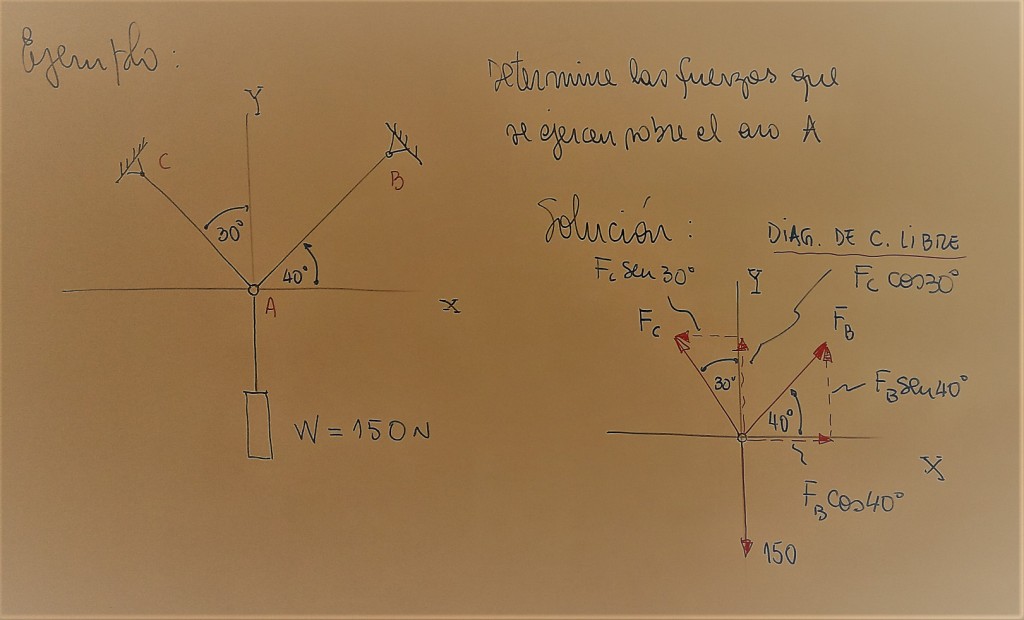 Ejemplo:
Determine las fuerzas que
se ejercen sobre el aro A
Y
C
B
30°
40°
A
X
W = 150 N
Solución:
DIAG. DE C. LIBRE
F_C sen 30°
Y
F_C cos 30°
F_C
F_B
30°
40°
F_B sen 40°
X
F_B cos 40°
150